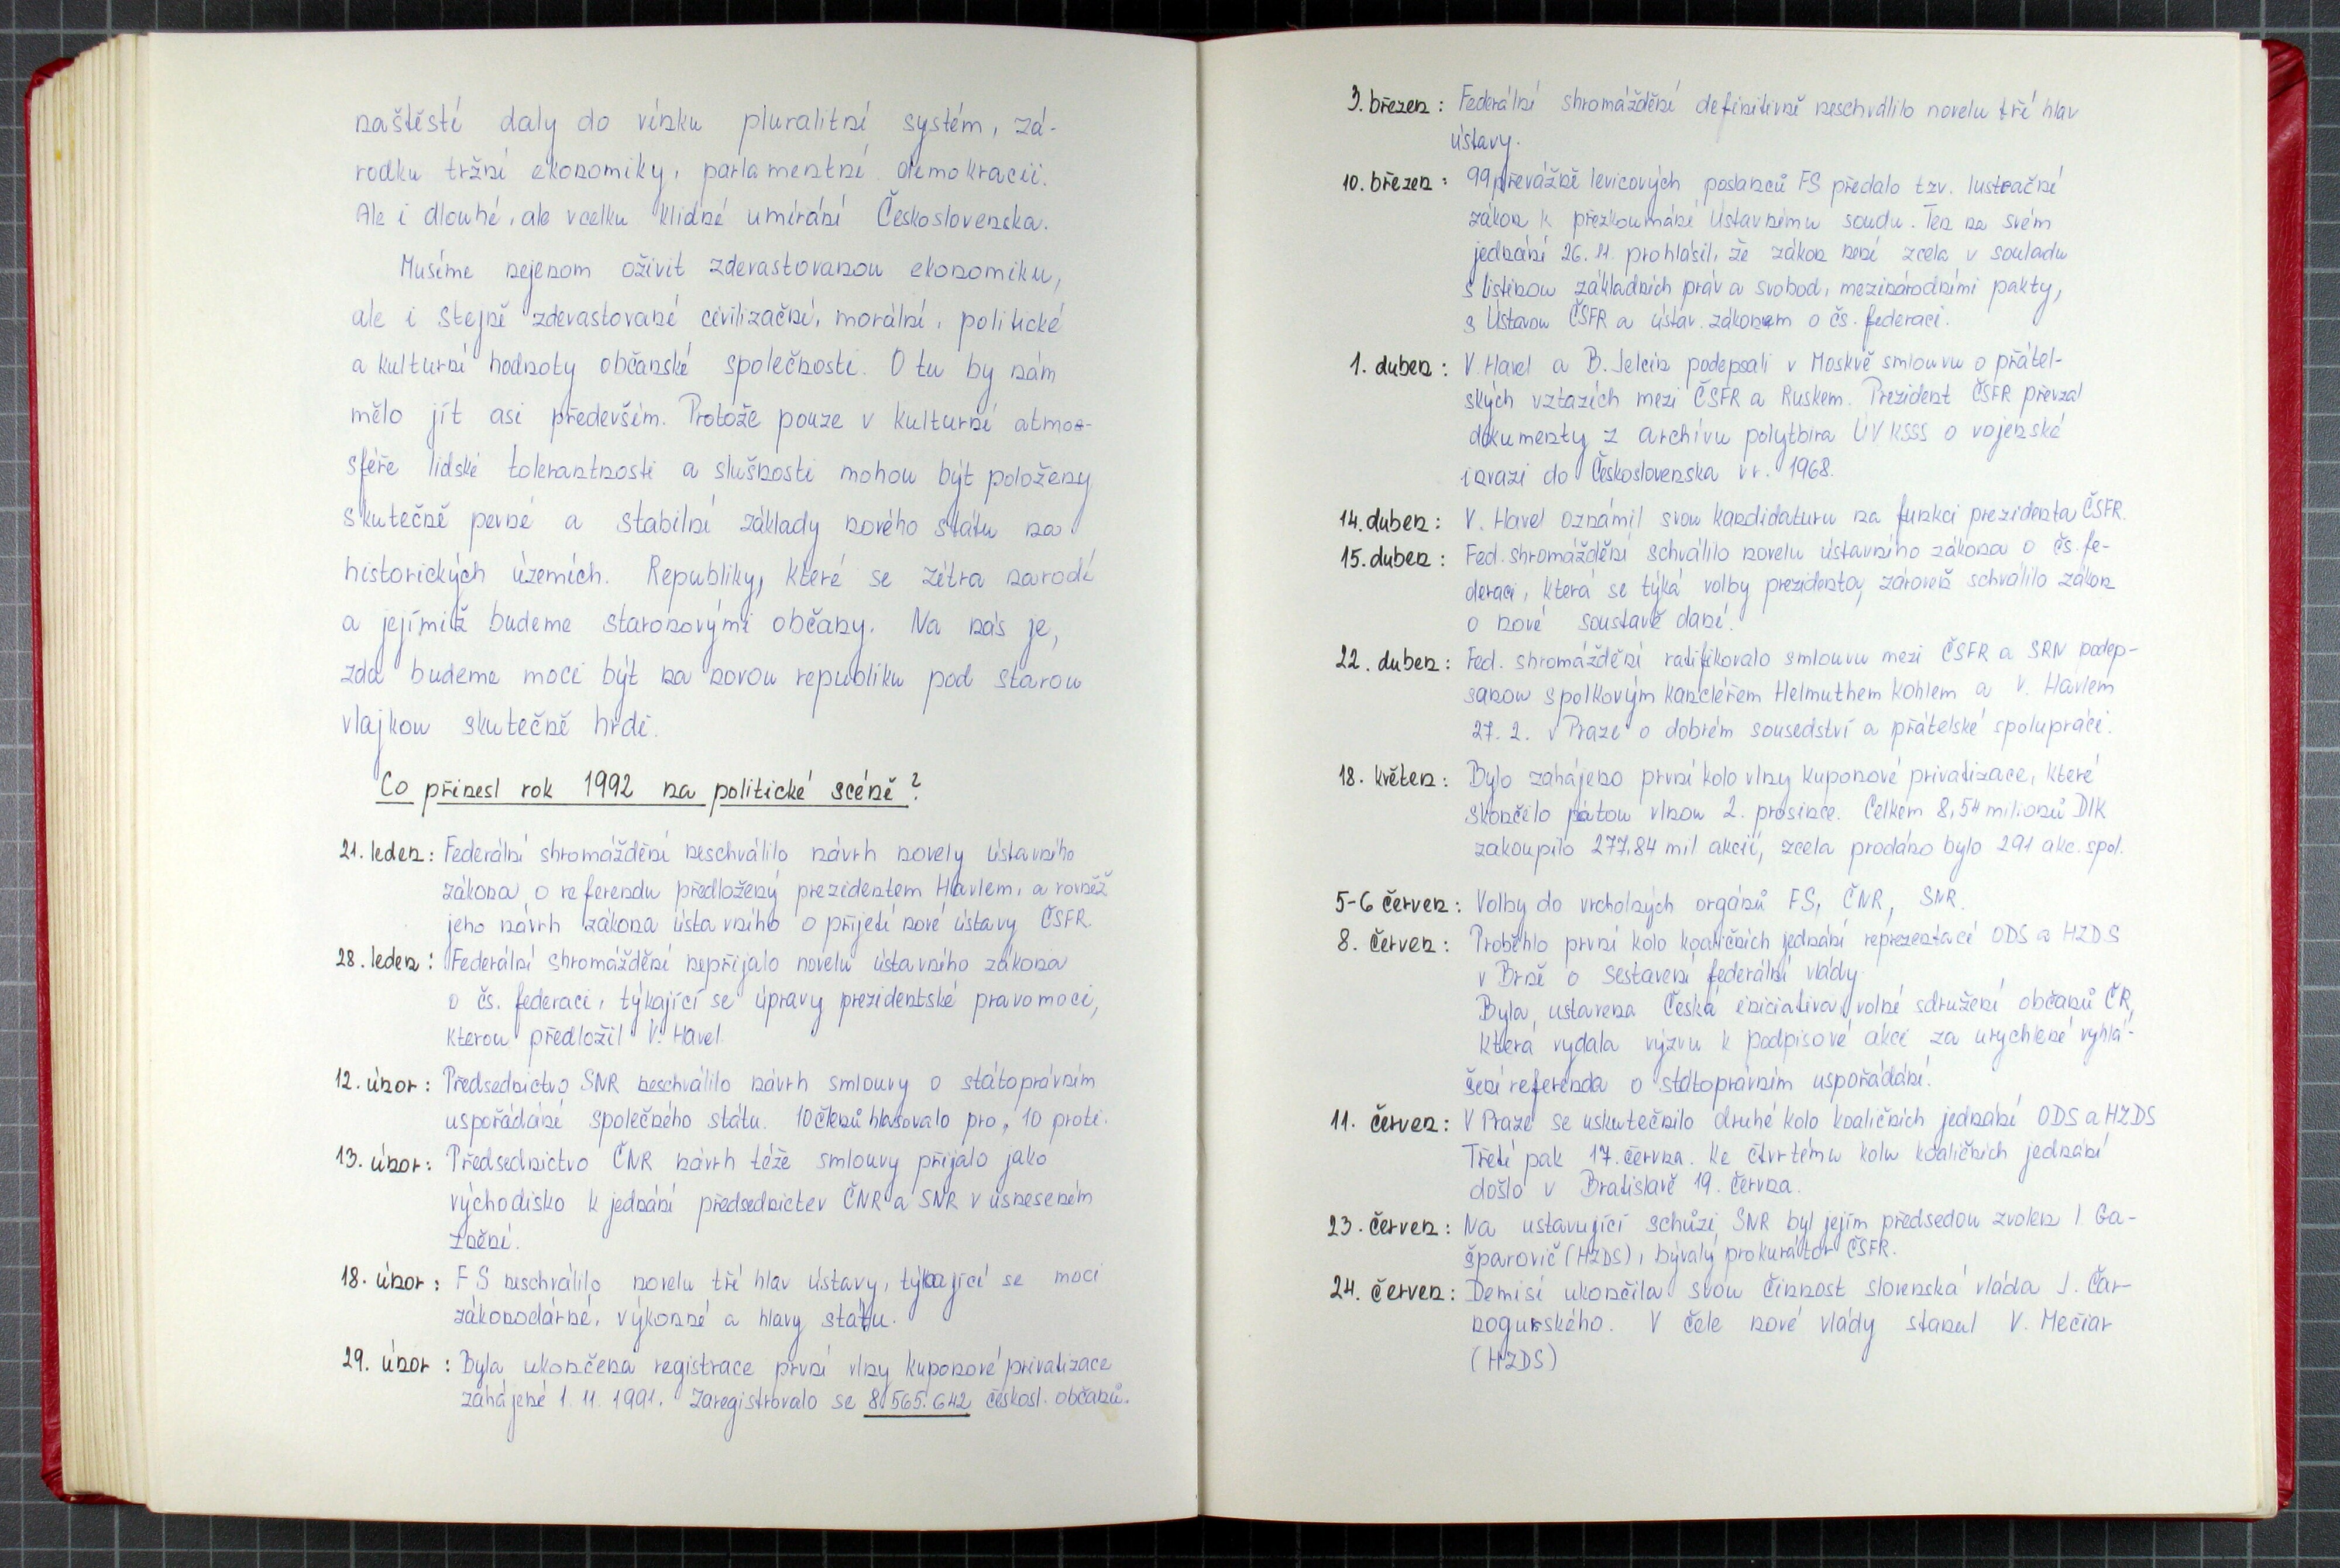 naštěstí daly do vínku pluralitní systém, zá-
rodku tržní ekonomiky, parlamentní demokracii.
Ale i dlouhé, ale vcelku klidné umírání Československa.
Musíme nejenom oživit zdevastovanou ekonomiku,
ale i stejně zdevastované civilizační, morální, politické
a kulturní hodnoty občanské společnosti. O tu by nám
mělo jít asi především. Protože pouze v kulturní atmos-
sféře lidské tolerantnosti a slušnosti mohou být položeny
skutečně pevné a stabilní základy nového státu na
historických územích. Republiky, které se zítra narodí
a jejímiž budeme staronovými občany. Na nás je,
zda budeme moci být na novou republiku pod starou
vlajkou skutečně hrdi.
Co přinesl rok 1992 na politické scéně?
21. leden: Federální shromáždění neschválilo návrh novely ústavního
zákona o referendu předložený prezidentem Havlem, a rovněž
jeho návrh zákona ústavního o přijetí nové ústavy ČSFR.
28. leden: Federální shromáždění nepřijalo novelu ústavního zákona
o čs. federaci, týkající se úpravy prezidentské pravomoci,
kterou předložil V. Havel.
12. únor: Předsednictvo SNR neschválilo návrh smlouvy o státoprávním
uspořádání společného státu. 10 členů hlasovalo pro, 10 proti.
13. únor: Předsednictvo ČNR návrh téže smlouvy přijalo jako
východisko k jednání předsednictev ČNR a SNR v usneseném
znění.
18. únor: FS neschválilo novelu tří hlav Ústavy, týkající se moci
zákonodárné, výkonné a hlavy státu.
29. únor: Byla ukončena registrace první vlny kuponové privatizace
zahájené 1. 11. 1991. Zaregistrovalo se 8.565.642 českosl. občanů.
3. březen: Federální shromáždění definitivně neschválilo novelu tří hlav
ústavy.
10. březen: 99 převážně levicových poslanců FS předalo tzv. lustrační
zákon k přezkoumání Ústavnímu soudu. Ten na svém
jednání 26. 11. prohlásil, že zákon není zcela v souladu
s listinou základních práv a svobod, mezinárodními pakty,
s Ústavou ČSFR a ústav. zákonem o čs. federaci.
1. duben: V. Havel a B. Jelcin podepsali v Moskvě smlouvu o přátel-
ských vztazích mezi ČSFR a Ruskem. Prezident ČSFR převzal
dokumenty z archívu polytbira ÚV KSSS o vojenské
invazi do Československa v r. 1968.
14. duben: V. Havel oznámil svou kandidaturu na funkci prezidenta ČSFR.
15. duben: Fed. shromáždění schválilo novelu ústavního zákona o čs. fe-
deraci, která se týká volby prezidenta, zároveň schválilo zákon
o nové soustavě daní.
22. duben: Fed. shromáždění ratifikovalo smlouvu mezi ČSFR a SRN podep-
sanou spolkovým kancléřem Helmuthem Kohlem a V. Havlem
27. 2. v Praze o dobrém sousedství a přátelské spolupráci.
18. květen: Bylo zahájeno první kolo vlny kuponové privatizace, které
skončilo pátou vlnou 2. prosince. Celkem 8,54 milionů DIK
zakoupilo 277.84 mil akcií, zcela prodáno bylo 291 akc. spol.
5-6 červen: Volby do vrcholných orgánů FS, ČNR, SNR.
8. červen: Proběhlo první kolo koaličních jednání reprezentací ODS a HZDS
v Brně o sestavení federální vlády.
Byla ustavena Česká iniciativa, volné sdružení občanů ČR,
která vydala výzvu k podpisové akci za urychlené vyhlá-
šení referenda o státoprávním uspořádání.
11. červen: V Praze se uskutečnilo druhé kolo koaličních jednání ODS a HZDS
Třetí pak 17. června. Ke čtvrtému kolu koaličních jednání
došlo v Bratislavě 19. června.
23. červen: Na ustavující schůzi SNR byl jejím předsedou zvolen I. Ga-
šparovič (HZDS), bývalý prokurátor ČSFR.
24. červen: Demisí ukončila svou činnost slovenská vláda J. Čar-
nogurského. V čele nové vlády stanul V. Mečiar
(HZDS)